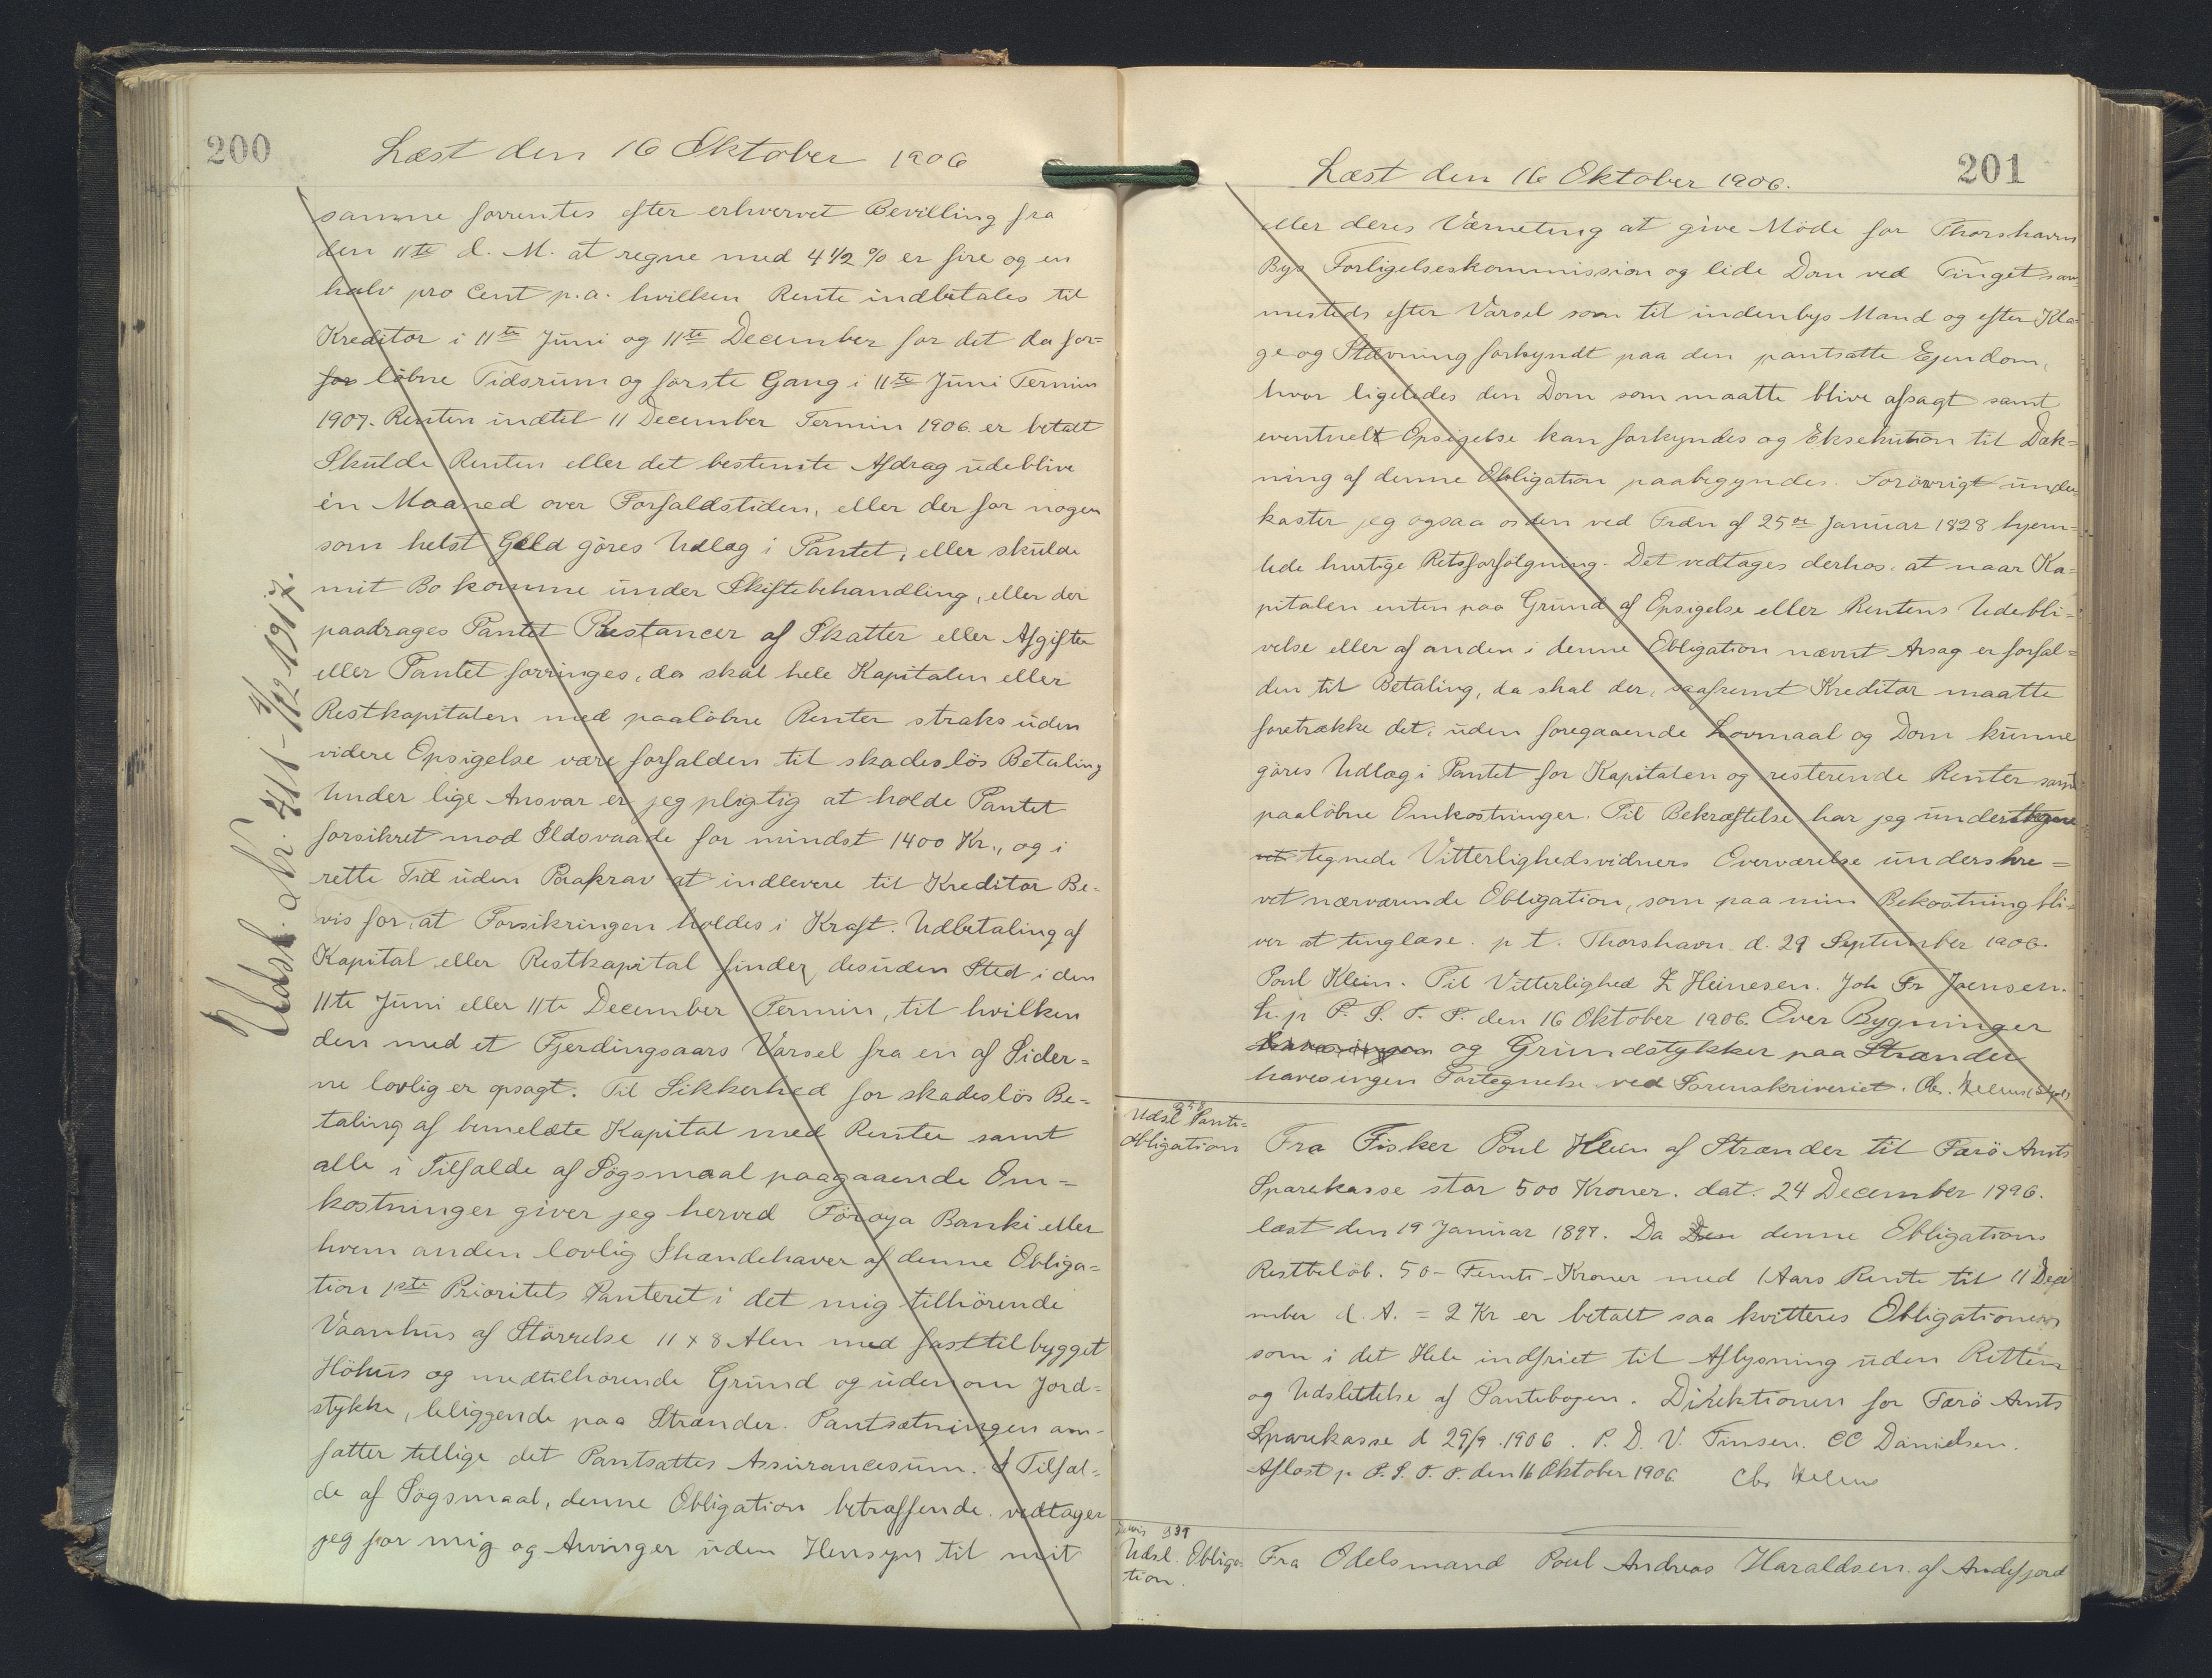 200
Læst den 16 Oktober 1906
samme forrentes efter erhvervet Bevilling fra
den 11te d. M. at regne med 4 1/2 % er fire og en
halv pro Cent p.a. hvilken Rente indbetales til
Kreditor i 11te Juni og 11te December for det da for=
for löbne Tidsrum og förste Gang i 11te Juni Termin
1907. Renten indtil 11 December Termin 1906 er betalt
Skulde Renten eller det bestemte Afdrag udeblive
én Maaned over Forfaldstiden, eller der for nogen
som helst Gæld göres Udlæg i Pantet, eller skulde
mit Bo komme under Skiftebehandling, eller der
paadrages Pantet Restancer af Skatter eller Afgifter
eller Pantet forringes, da skal hele Kapitalen eller
Restkapitalen med paalöbne Renter straks uden
videre Opsigelse være forfalden til skadeslös Betaling
Under lige Ansvar er jeg pligtig at holde Pantet
forsikret mod Ildsvaade for mindst 1400 Kr., og i
rette Tid uden Paakrav at indlevere til Kreditor Be-
vis for, at Forsikringen holdes i Kraft. Udbetaling af
Kapital eller Restkapital finder desuden Sted i den
11te Juni eller 11te December Termin, til hvilken
den med et Fjerdingsaars Varsel fra en af Sider=
ne lovlig er opsagt. Til Sikkerhed for skadeslös Be=
taling af bemeldte Kapital med Renter samt
alle i Tilfælde af Sögsmaal paagaaende Om=
kostninger giver jeg herved Föroya Banki eller
hvem anden lovlig Ihændehaver af denne Obliga=
tion 1ste Prioritets Panteret i det mig tilhörende
Vaanhus af Störrelse 11 x 8 Alen med fasttilbygget
Höhus og medtilhörende Grund og udenom Jord=
stykke, beliggende paa Strænder. Pantsætningen om-
fatter tillige det Pantsattes Assurancesum. I Tilfæl=
de af Sögsmaal, denne Obligation betræffende vedtager
jeg for mig og Arvinger uden Hensyn til mit
Udsl. Nr. 411 - 4/12 1917.
201
Læst den 16 Oktober 1906.
eller deres Værneting at give Möde for Thorshavns
Bys Forligelseskommission og lide Dom ved Tinget sam
mesteds efter Varsel som til indenbys Mand og efter Kla=
ge og Stævning forkyndt paa den pantsatte Ejendom,
hvor ligeledes den Dom som maatte blive afsagt samt
eventuelt Opsigelse kan forkyndes og Eksekution til Dæk=
ning af denne Obligation paabegyndes. Forövrigt under
kaster jeg ogsaa os den ved Frdn af 25de Januar 1828 hjem=
lede hurtige Retsforfölgning. Det vedtages derhos, at naar Ka=
pitalen enten paa Grund af Opsigelse eller Rentens Udebli=
velse eller af anden i denne Obligation nævnt Arsag er forfal=
den til Betaling, da skal der, saafremt Kreditor maatte
foretrække det, uden foregaaende Lovmaal og Dom kunne
göres Udlæg i Pantet for Kapitalen og resterende Renter samt
paalöbne Omkostninger. Til Bekræftelse har jeg under
tegnede Vitterlighedsvidners Overværelse underskre=
vet nærværende Obligation, som paa min Bekostning bli=
ver at tinglæse. p t. Thorshavn d. 29 September 1906.
Poul Klein. Til Vitterlighed Z Heinesen. Joh Fr Joensen.
L. p P. S. T. P. den 16 Oktober 1906. Over Bygninger
og Grundstykker paa Strænder
haves ingen Fortegnelse ved Sorenskriveriet. Chr. Helms
Udsl Pante=
obligation
Fra Fisker Poul Klein af Strænder til Færö Amts
Sparekasse stor 500 Kroner. dat. 24 December 1896.
læst den 19 Januar 1897. Da Den denne Obligations
Restbelöb. 50 - Femti - Kroner med 1 Aars Rente til 11 Dece
mber d. A. = 2 Kr er betalt saa kvitteres Obligationen
som i det Hele indfriet til Aflysning uden Retten
og Udslettelse af Pantebogen. Direktionen for Færö Amts
Sparekasse d 29/9. 1906. P. D. V. Finsen. CC Danielsen.
Aflæst p P. S. T. P. den 16 Oktober 1906. Chr Helms
939
Udsl. Obliga-
tion.
Fra Odelsmand Poul Andreas Haraldsen af Andefjord